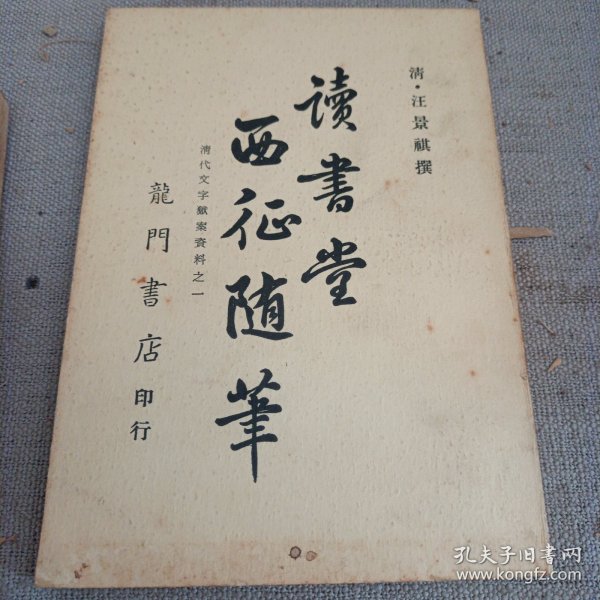 清·汪景祺撰
讀書堂
西征随筆
清代文字獄案資料之一
龍門書店印行
孔夫子旧书网
www.kongfz.com